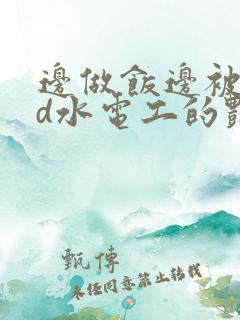 邊做飯邊被
d水電工的
甄傳
未經同意禁止轉載